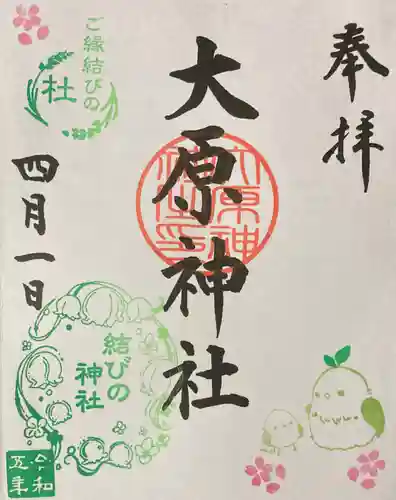 奉拝
大原神社
ご縁結びの
杜
四月一日
結びの
神社
令和
五年